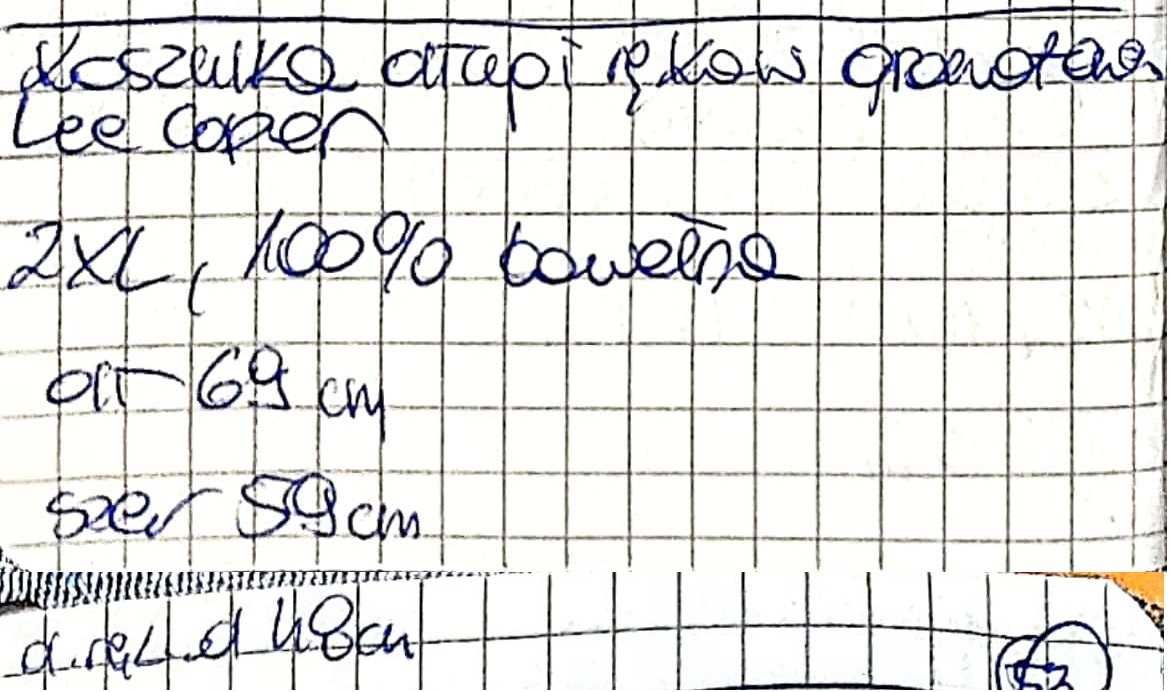 Koszulka długi rękaw granatowa
Lee Coper
2XL, 100% bawełna
dł 69 cm
szer 59 cm
dł. ręk. d 48 cm